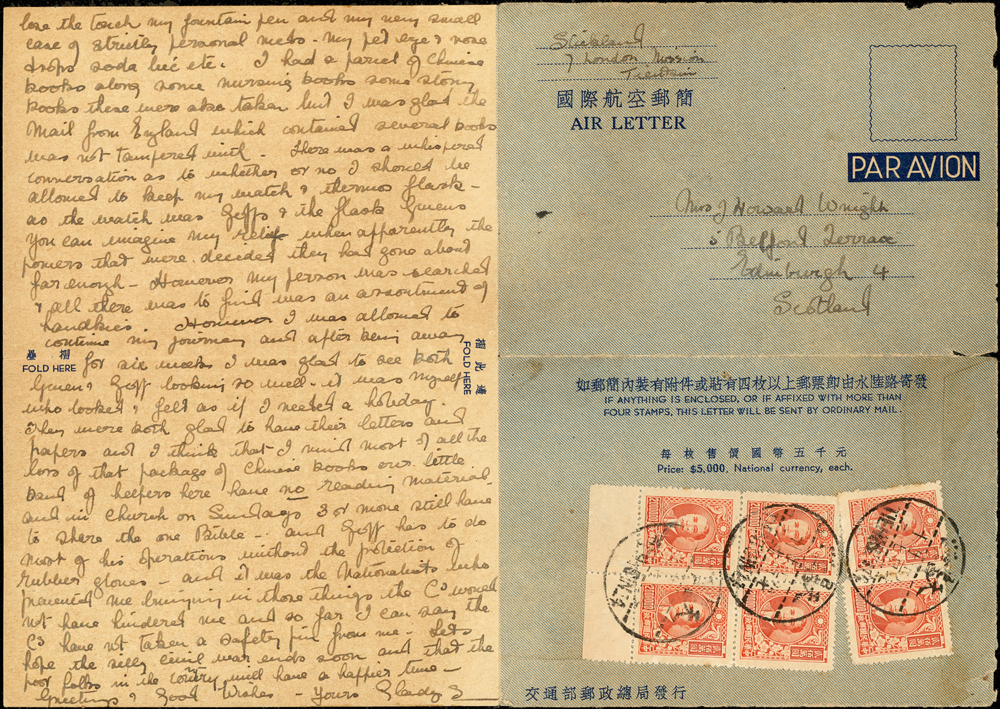 lose the torch my fountain pen and my very small
case of strictly personal meds - my pet eye & nose
drops soda bic etc. I had a parcel of Chinese
books along some nursing books some story
books these were also taken but I was glad the
Mail from England which contained several books
was not tampered with - There was a whispered
conversation as to whether or no I should be
allowed to keep my watch & thermos flask -
as the watch was Geffs & the flask Gwens
you can imagine my relief when apparently the
powers that were decided they had gone about
far enough - However my person was searched
& all there was to find was an assortment of
handkies. However I was allowed to
continue my journey and after being away
for six weeks I was glad to see both
Gwen & Geff looking so well - it was myself
who looked & felt as if I needed a holiday.
They were both glad to have their letters and
papers and I think that I mind most of all the
loss of that package of Chinese books our little
band of helpers here have no reading material
and in church on Sundays 3 or more still have
to share the one Bible - and Geff has to do
most of his operations without the protection of
rubber gloves - and it was the Nationalists who
prevented me bringing in those things the C's would
not have hindered me and so far I can say the
C's have not taken a safety pin from me - Lets
hope the silly civil war ends soon and that the
poor folks in the country will have a happier time -
Greetings & Good Wishes - Yours Gladys
摺 疊
FOLD HERE
摺 此 邊
FOLD HERE
Stickland
7 London Mission
Tientsin
國際航空郵簡
AIR LETTER
PAR AVION
Mrs J Howard Wright
5 Belford Terrace
Edinburgh 4
Scotland
如郵簡內裝有附件或貼有四枚以上郵票卽由水陸路寄發
IF ANYTHING IS ENCLOSED, OR IF AFFIXED WITH MORE THAN
FOUR STAMPS, THIS LETTER WILL BE SENT BY ORDINARY MAIL.
每枚售價國幣五千元
Price: $5,000, National currency, each.
交通部郵政總局發行